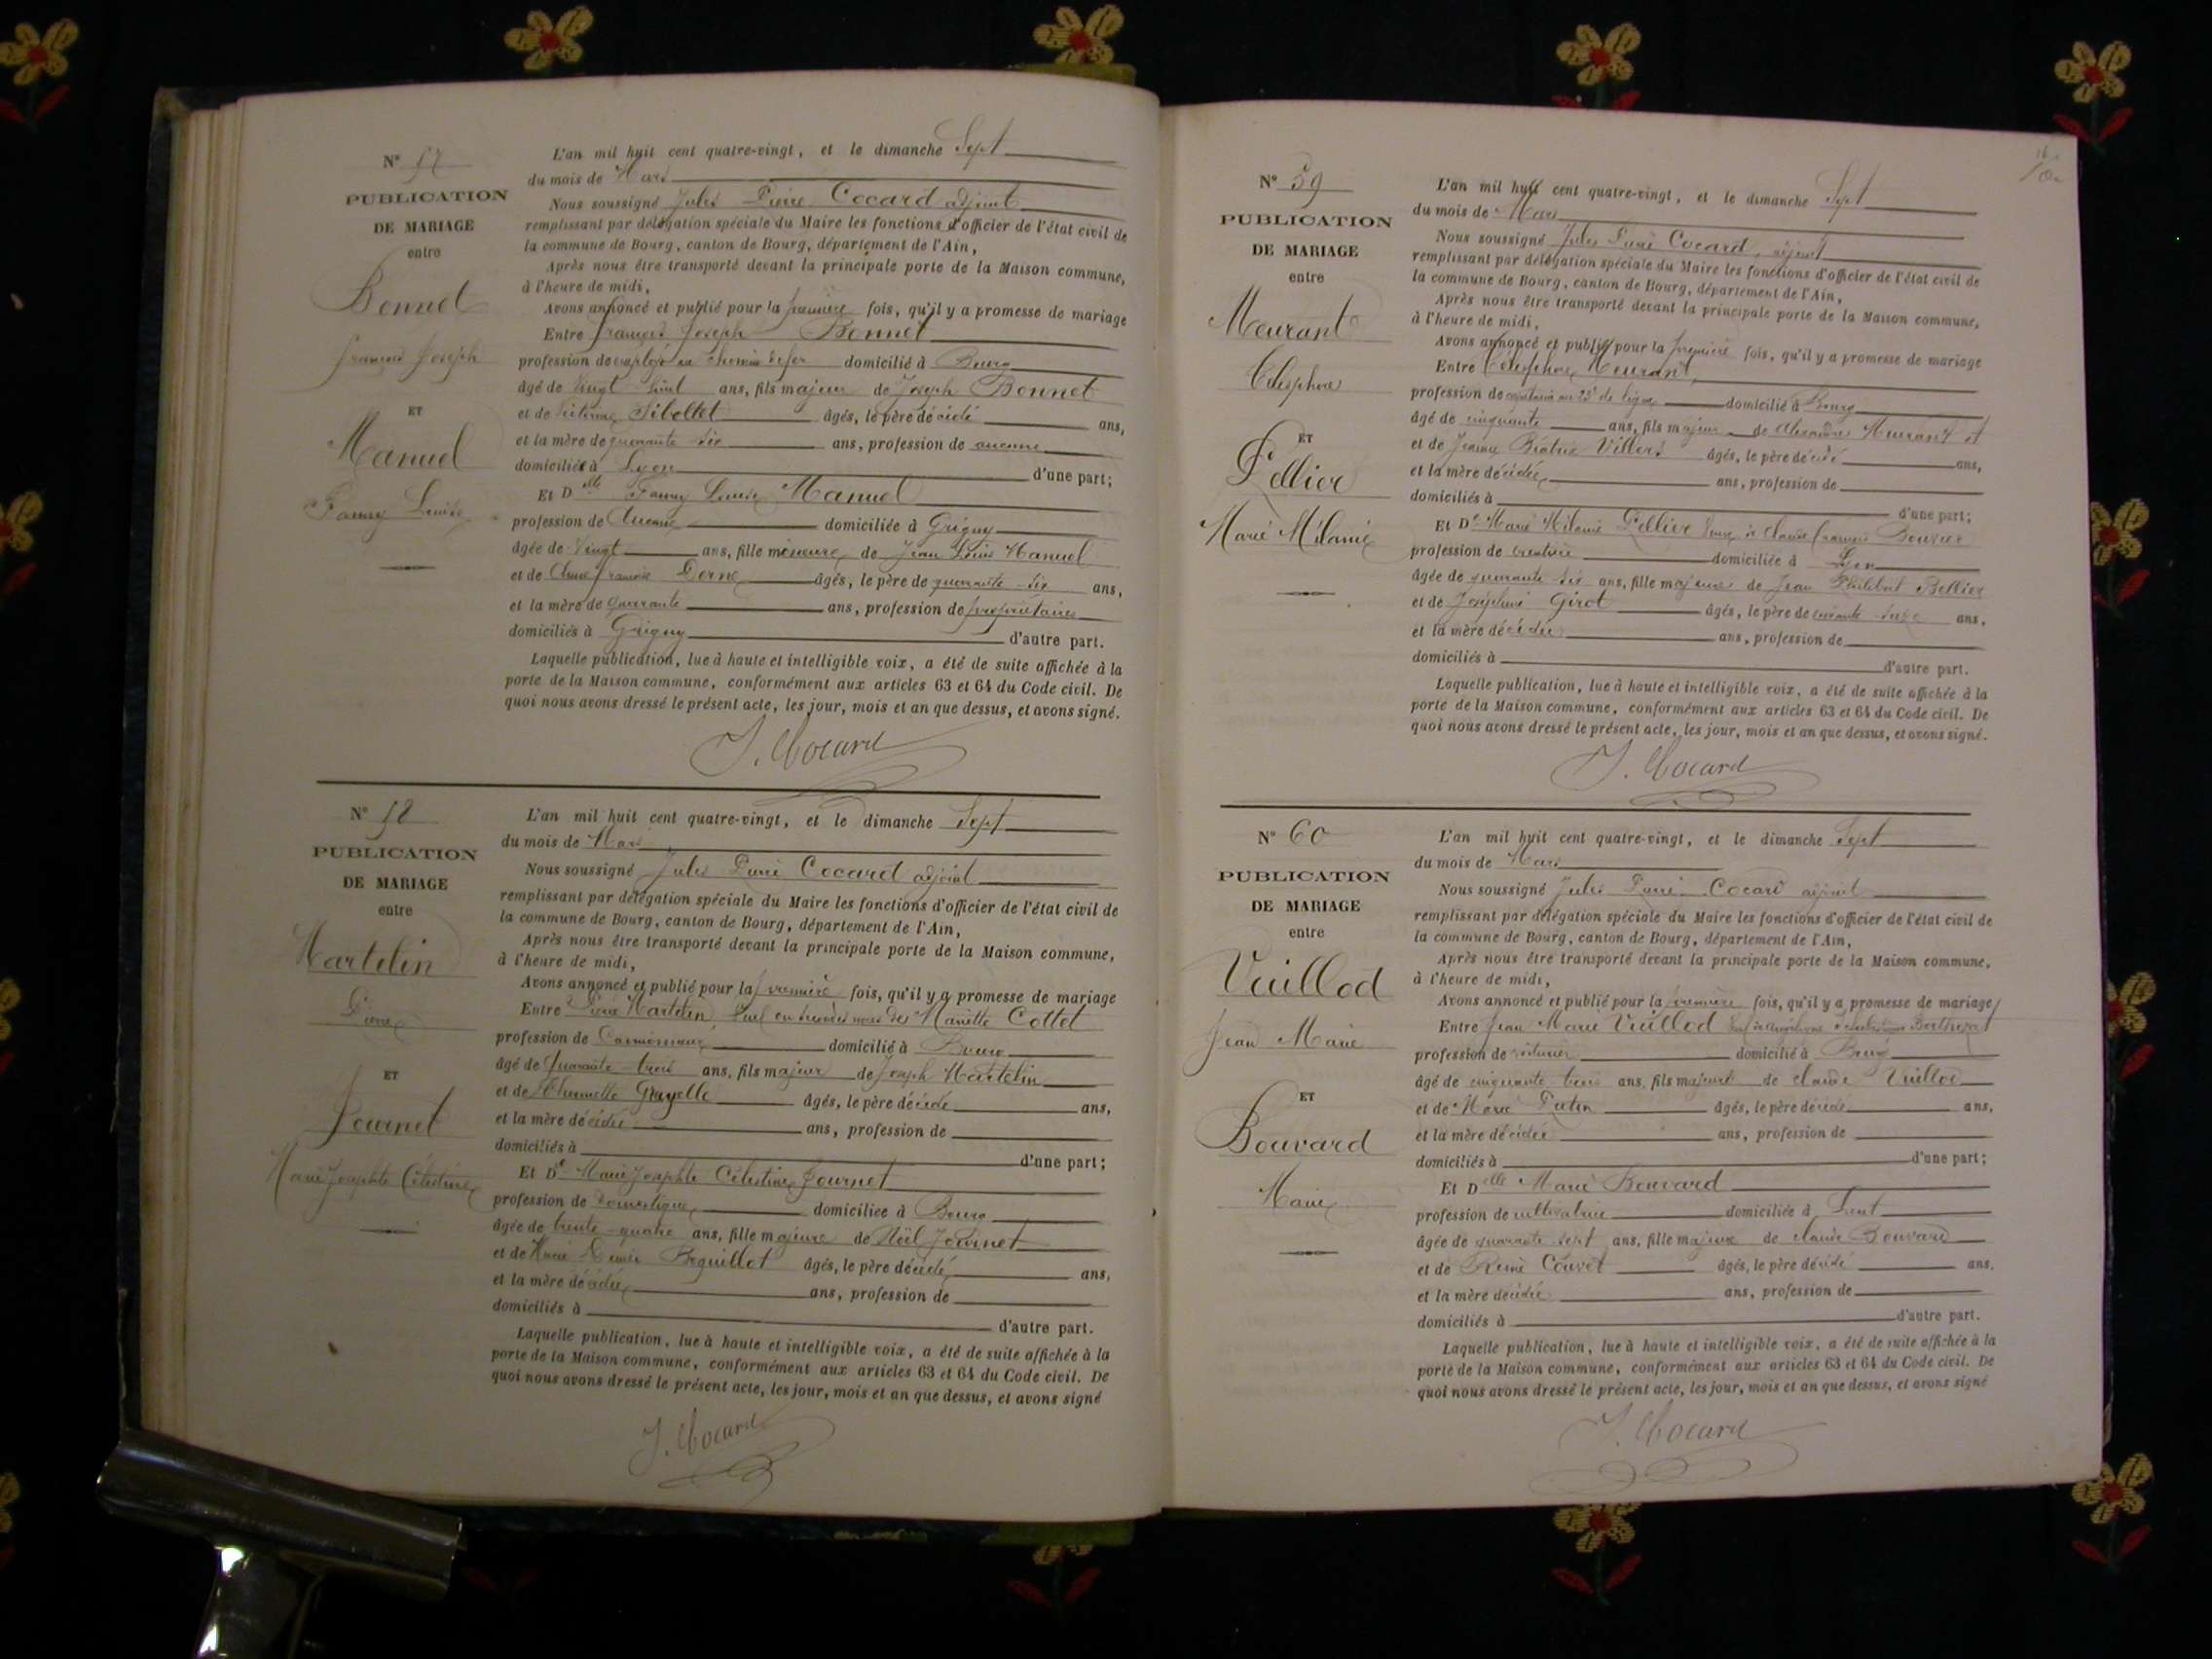 N° 57
PUBLICATION
DE MARIAGE
entre
Bonnet
François Joseph
ET
Manuel
Fanny Louise
L'an mil huit cent quatre-vingt, et le dimanche Sept
du mois de Mars
Nous soussigné Jules Pierre Cocard adjoint
remplissant par délégation spéciale du Maire les fonctions d'officier de l'état civil de
la commune de Bourg, canton de Bourg, département de l'Ain,
Après nous être transporté devant la principale porte de la Maison commune,
à l'heure de midi,
Avons annoncé et publié pour la première fois, qu'il y a promesse de mariage
Entre François Joseph Bonnet
profession de employé au chemin de fer domicilié à Bourg
âgé de vingt huit ans, fils majeur de Joseph Bonnet
et de Sibeltet âgés, le père décédé ans,
et la mère de quarante six ans, profession de aucune
domiciliés à Lyon d'une part;
Et Delle Fanny Louise Manuel
profession de Aucune domiciliée à Grigny
âgée de Vingt ans, fille mineure de Jean Louis Manuel
et de françoise Dorne âgés, le père de quarante six ans,
et la mère de quarante ans, profession de propriétaires
domiciliés à Grigny d'autre part.
Laquelle publication, lue à haute et intelligible voix, a été de suite affichée à la
porte de la Maison commune, conformément aux articles 63 et 64 du Code civil. De
quoi nous avons dressé le présent acte, les jour, mois et an que dessus, et avons signé.
J. Cocard
N° 58
PUBLICATION
DE MARIAGE
entre
Martelin
Pierre
ET
Journet
Marie Josephte Célestine
L'an mil huit cent quatre-vingt, et le dimanche Sept
du mois de Mars
Nous soussigné Jules Pierre Cocard adjoint
remplissant par délégation spéciale du Maire les fonctions d'officier de l'état civil de
la commune de Bourg, canton de Bourg, département de l'Ain,
Après nous être transporté devant la principale porte de la Maison commune,
à l'heure de midi,
Avons annoncé et publié pour la première fois, qu'il y a promesse de mariage
Entre Pierre Martelin, veuf en secondes noces de Mariette Cottet
profession de Camionneur domicilié à Bourg
âgé de quarante trois ans, fils majeur de Joseph Martelin
et de Gruyelle âgés, le père décédé ans,
et la mère décédée ans, profession de
domiciliés à d'une part;
Et De Marie Josephte Célestine Journet
profession de Domestique domiciliée à Bourg
âgée de trente-quatre ans, fille majeure de Noël Journet
et de Marie Aimée Peguillot âgés, le père décédé ans,
et la mère décédée ans, profession de
domiciliés à d'autre part.
Laquelle publication, lue à haute et intelligible voix, a été de suite affichée à la
porte de la Maison commune, conformément aux articles 63 et 64 du Code civil. De
quoi nous avons dressé le présent acte, les jour, mois et an que dessus, et avons signé
J. Cocard
N° 59
PUBLICATION
DE MARIAGE
entre
Meurant
Télesphore
ET
Pellier
Marie Mélanie
L'an mil huit cent quatre-vingt, et le dimanche Sept
du mois de Mars
Nous soussigné Jules Pierre Cocard, adjoint
remplissant par délégation spéciale du Maire les fonctions d'officier de l'état civil de
la commune de Bourg, canton de Bourg, département de l'Ain,
Après nous être transporté devant la principale porte de la Maison commune,
à l'heure de midi,
Avons annoncé et publié pour la première fois, qu'il y a promesse de mariage
Entre Télesphore Meurant
profession de capitaine au 23e de ligne domicilié à Bourg
âgé de cinquante ans, fils majeur de Alexandre Meurant et
et de Jeanne Béatrix Villers âgés, le père décédé ans,
et la mère décédée ans, profession de
domiciliés à d'une part;
Et De Marie Mélanie Pellier Veuve de Claude François Bouvier
profession de domiciliée à Lyon
âgée de quarante six ans, fille majeure de Jean Philibert Pellier
et de Joséphine Girot âgés, le père de ans,
et la mère décédée ans, profession de
domiciliés à d'autre part.
Laquelle publication, lue à haute et intelligible voix, a été de suite affichée à la
porte de la Maison commune, conformément aux articles 63 et 64 du Code civil. De
quoi nous avons dressé le présent acte, les jour, mois et an que dessus, et avons signé.
J. Cocard
N° 60
PUBLICATION
DE MARIAGE
entre
Vuillod
Jean Marie
ET
Bouvard
Marie
L'an mil huit cent quatre-vingt, et le dimanche Sept
du mois de Mars
Nous soussigné Jules Pierre Cocard adjoint
remplissant par délégation spéciale du Maire les fonctions d'officier de l'état civil de
la commune de Bourg, canton de Bourg, département de l'Ain,
Après nous être transporté devant la principale porte de la Maison commune,
à l'heure de midi,
Avons annoncé et publié pour la première fois, qu'il y a promesse de mariage
Entre Jean Marie Vuillod
profession de voiturier domicilié à Bourg
âgé de cinquante trois ans, fils majeur de claude Vuillod
et de Marie Putin âgés, le père décédé ans,
et la mère décédée ans, profession de
domiciliés à d'une part;
Et Delle Marie Bouvard
profession de cultivatrice domiciliée à
âgée de quarante sept ans, fille majeure de claude Bouvard
et de Reine Couvet âgés, le père décédé ans.
et la mère décédée ans, profession de
domiciliés à d'autre part.
Laquelle publication, lue à haute et intelligible voix, a été de suite affichée à la
porte de la Maison commune, conformément aux articles 63 et 64 du Code civil. De
quoi nous avons dressé le présent acte, les jour, mois et an que dessus, et avons signé
J. Cocard